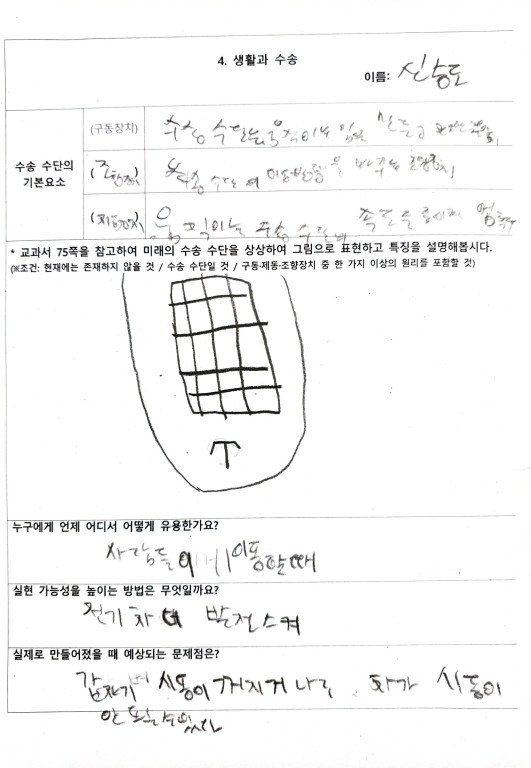 4. 생활과 수송
이름: 신승도
수송 수단의
기본요소
(구동장치) 수송 수단을 움직이게 힘을 만들고
(조향장치) 수송 수단의 이동방향을 바꾸는 조향장치
(제동장치) 움직이는 수송 수단의 속도를 줄이며 멈추
* 교과서 75쪽을 참고하여 미래의 수송 수단을 상상하여 그림으로 표현하고 특징을 설명해봅시다.
(※조건: 현재에는 존재하지 않을 것 / 수송 수단일 것 / 구동·제동·조향장치 중 한 가지 이상의 원리를 포함할 것)
누구에게 언제 어디서 어떻게 유용한가요?
사람들에게 이동할때
실현 가능성을 높이는 방법은 무엇일까요?
전기차 발전스켜
실제로 만들어졌을 때 예상되는 문제점은?
갑자기 시동이 꺼지거나 시동이
안